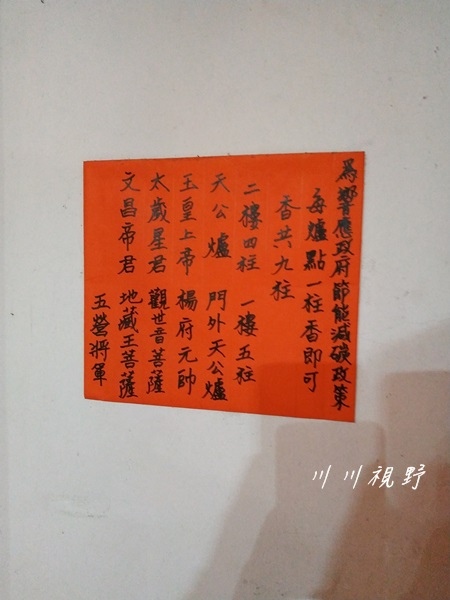 為響應政府節能減碳政策
每爐點一柱香即可
香共九柱
二樓四柱 一樓五柱
天公爐 門外天公爐
玉皇上帝 楊府元帥
太歲星君 觀世音菩薩
文昌帝君 地藏王菩薩
五營將軍
川川視野